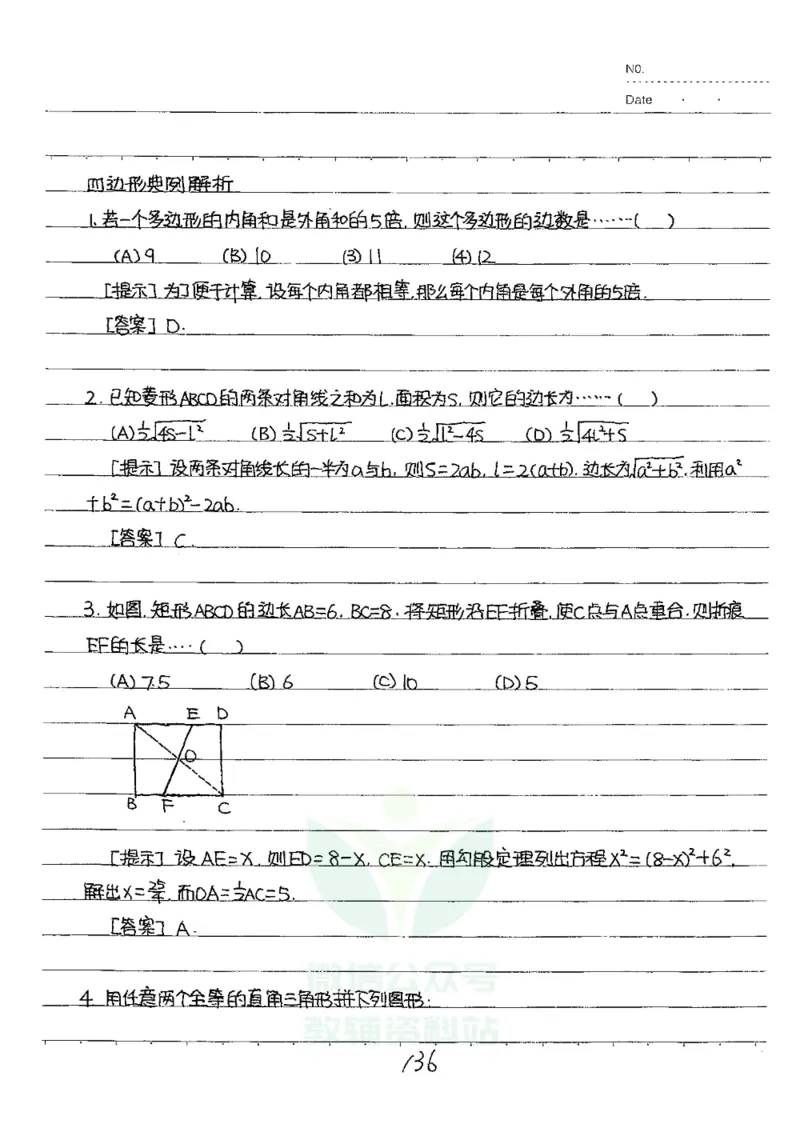 NO.
Date · ·
四边形典例解析
1.若一个多边形的内角和是外角和的5倍,则这个多边形的边数是……( )
(A) 9 (B) 10 (3) 11 (4) 12
[提示] 为了便于计算,设每个内角都相等,那么每个内角是每个外角的5倍.
[答案] D.
2. 已知菱形ABCD的两条对角线之和为l,面积为S,则它的边长为……( )
(A) ½√4S-l² (B) ½√S+l² (C) ½√l²-4S (D) ½√4l²+S
[提示] 设两条对角线长的一半为a与b,则S=2ab, l=2(a+b).边长为√a²+b²,利用a²
+b²=(a+b)²-2ab.
[答案] C.
3. 如图,矩形ABCD的边长AB=6, BC=8,将矩形沿EF折叠,使C点与A点重合,则折痕
EF的长是…( )
(A) 7.5 (B) 6 (C) 10 (D) 5
A E D
O
B F C
[提示] 设AE=X,则ED=8-X, CE=X.用勾股定理列出方程X²=(8-X)²+6²,
解出X=25/4,而OA=½AC=5.
[答案] A.
微信公众号
4. 用任意两个全等的直角三角形拼下列图形:
教辅资料站
136